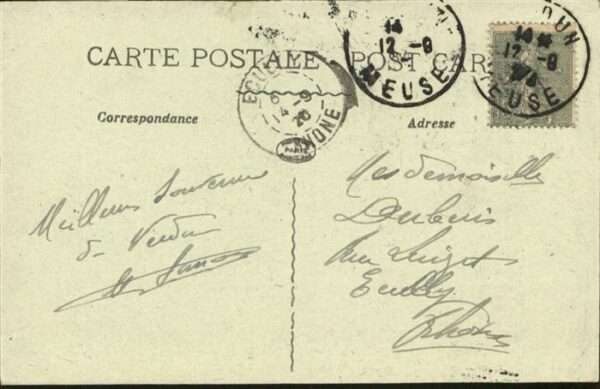 CARTE POSTALE
POST CAR
Correspondance
Adresse
14
12 -9
MEUSE
14
12 -9
MEUSE
ECUL
14 -9
20
PARIS
Meilleurs Souvenirs
de Verdun
Mesdemoiselles
Dubuis
Rue
Ecully
Rhône